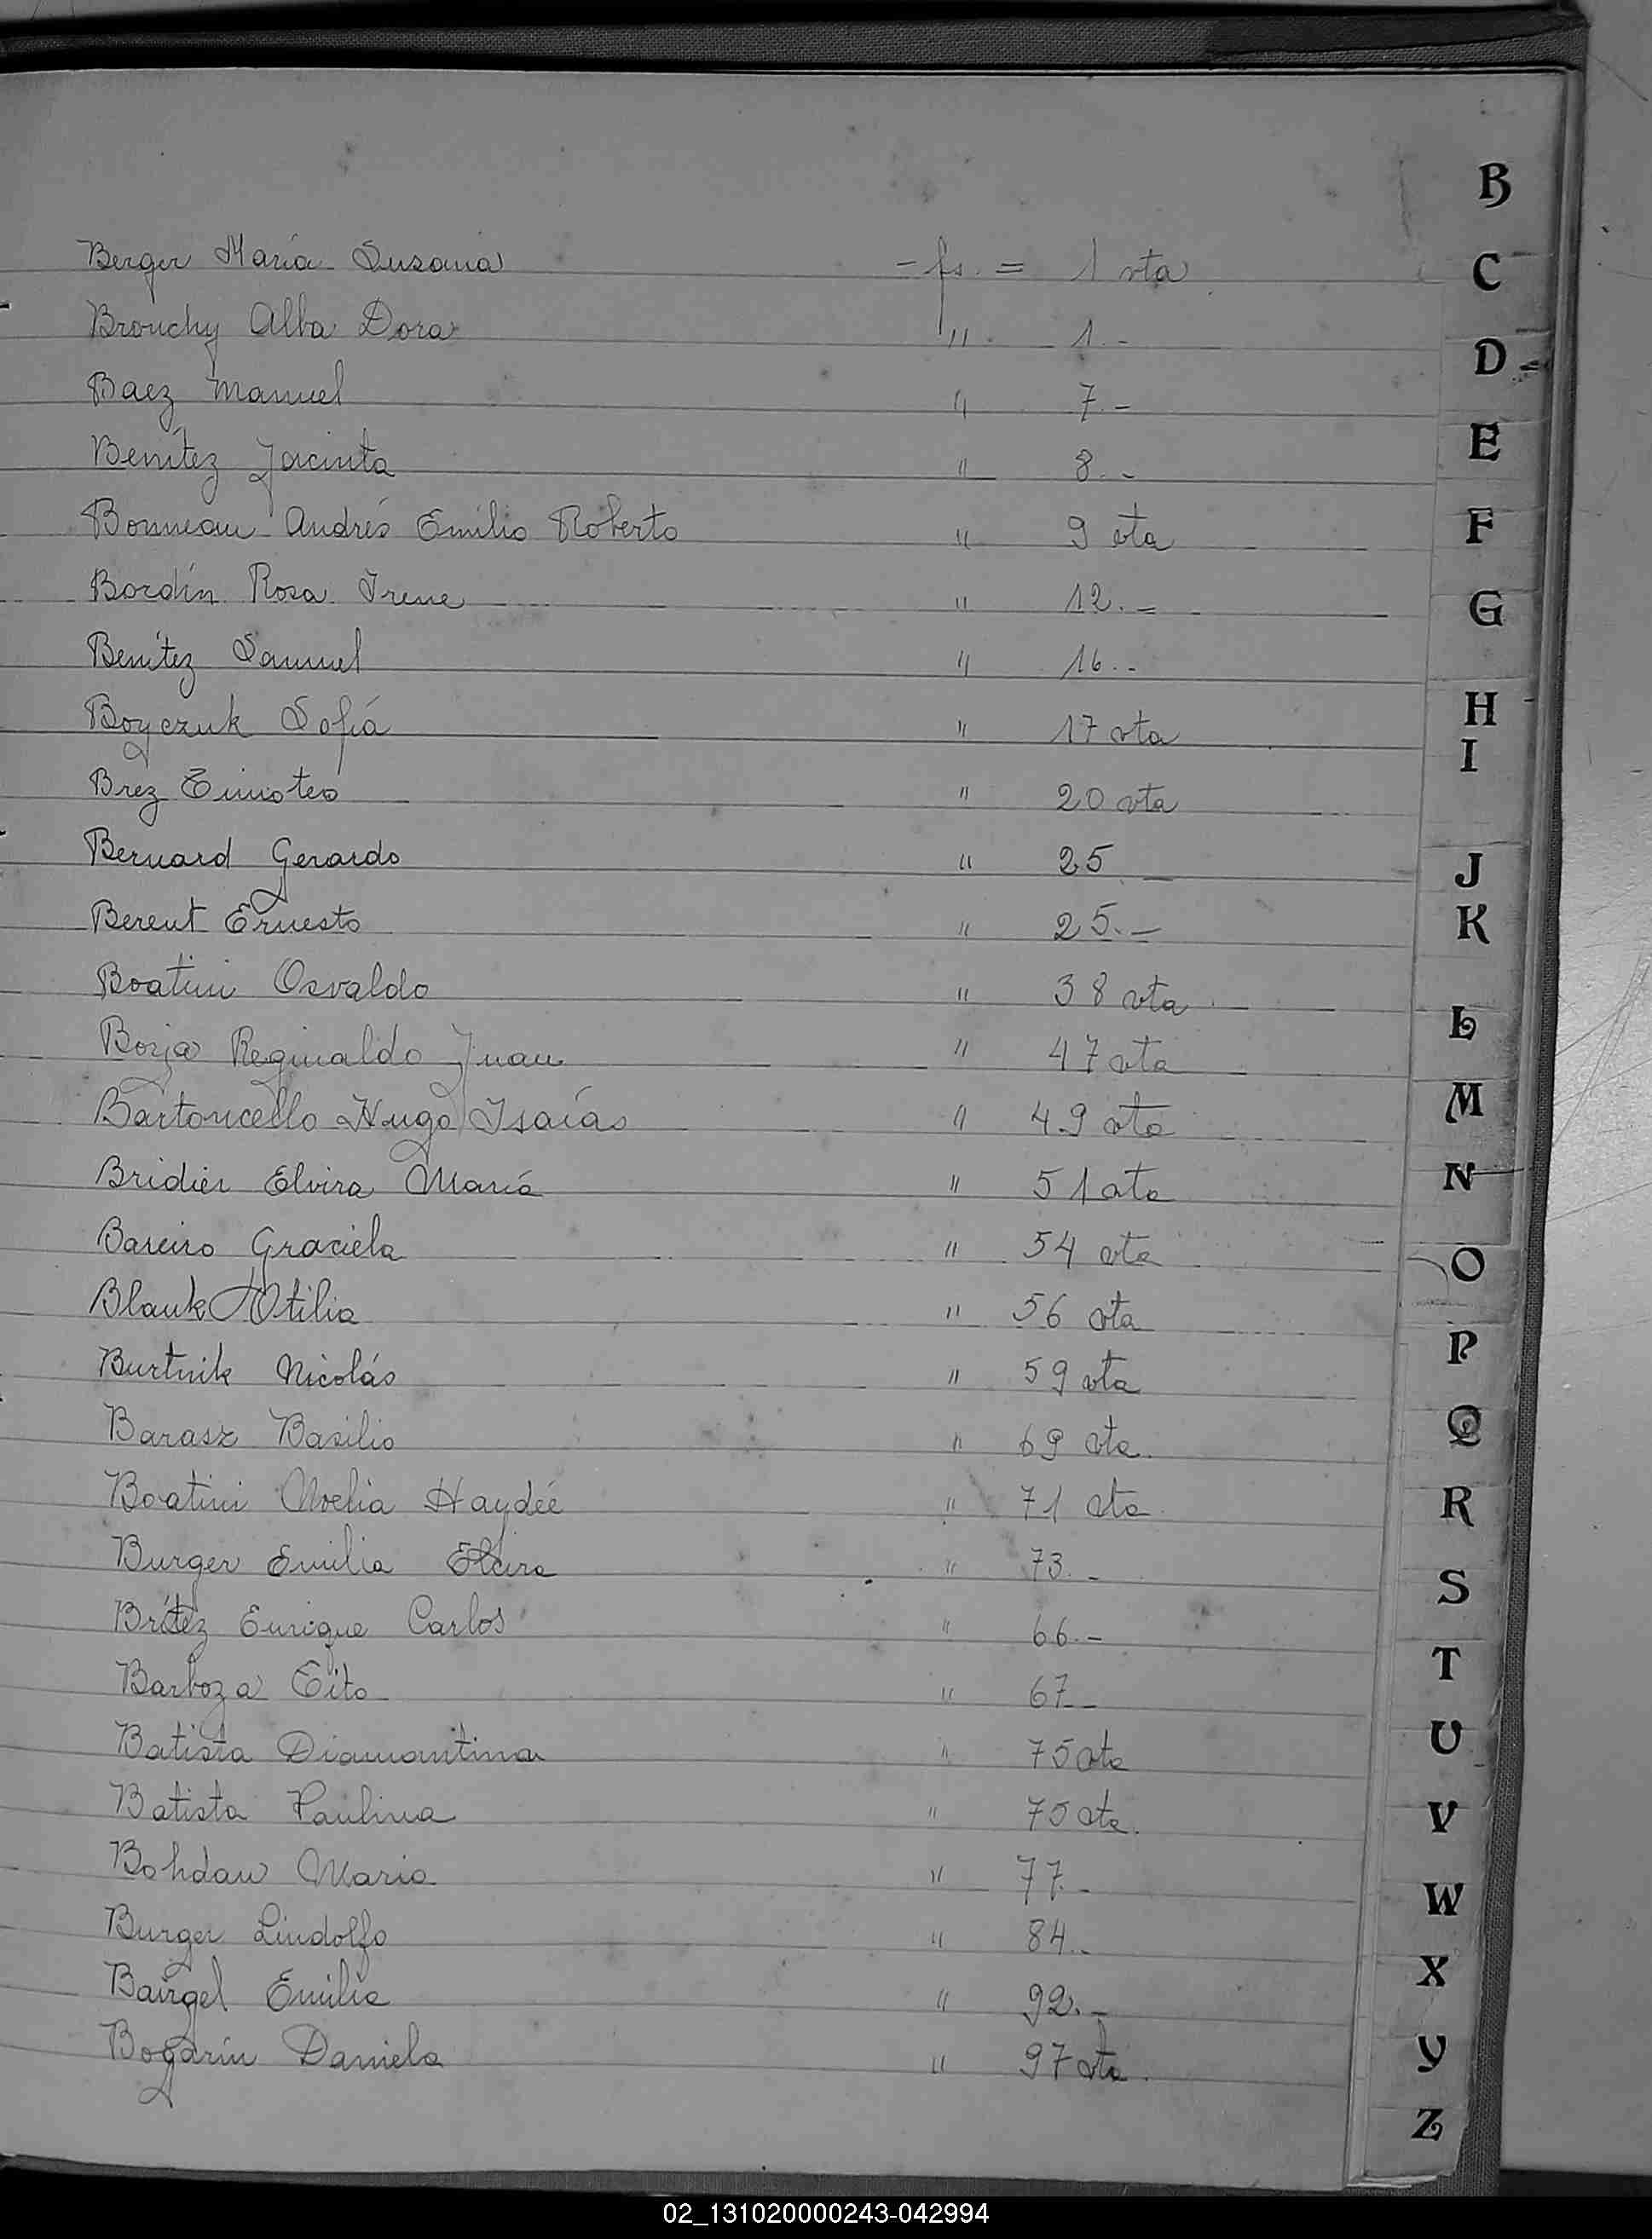 Berger María Susana - fs. = 1 vta
Brouchy Alba Dora " 1.-
Baez Manuel " 7.-
Benítez Jacinta " 8.-
Bonneau Andrés Emilio Roberto " 9 vta
Bordín Rosa Irene " 12.-
Benítez Samuel " 16.-
Boyczuk Sofía " 17 vta
Brez Timoteo " 20 vta
Bernard Gerardo " 25
Berent Ernesto " 25.-
Boatini Osvaldo " 38 vta
Borja Reginaldo Juan " 47 vta
Bartoncello Hugo Isaías " 49 vta
Bridier Elvira María " 51 vta
Bareiro Graciela " 54 vta
Blank Otilia " 56 vta
Burtnik Nicolás " 59 vta
Barasz Basilio " 69 vta
Boatini Noelia Haydée " 71 vta
Burger Emilia " 73.-
Brítez Enrique Carlos " 66.-
Barboza Tito " 67.-
Batista Diamantina " 75 vta
Batista Paulina " 75 vta.
Bohdan Maria " 77.-
Burger Lindolfo " 84.-
Bairgel Emilia " 92.-
Bogarín Daniela " 97 vta.
B
C
D
E
F
G
H
I
J
K
L
M
N
O
P
Q
R
S
T
U
V
W
X
Y
Z
02_131020000243-042994